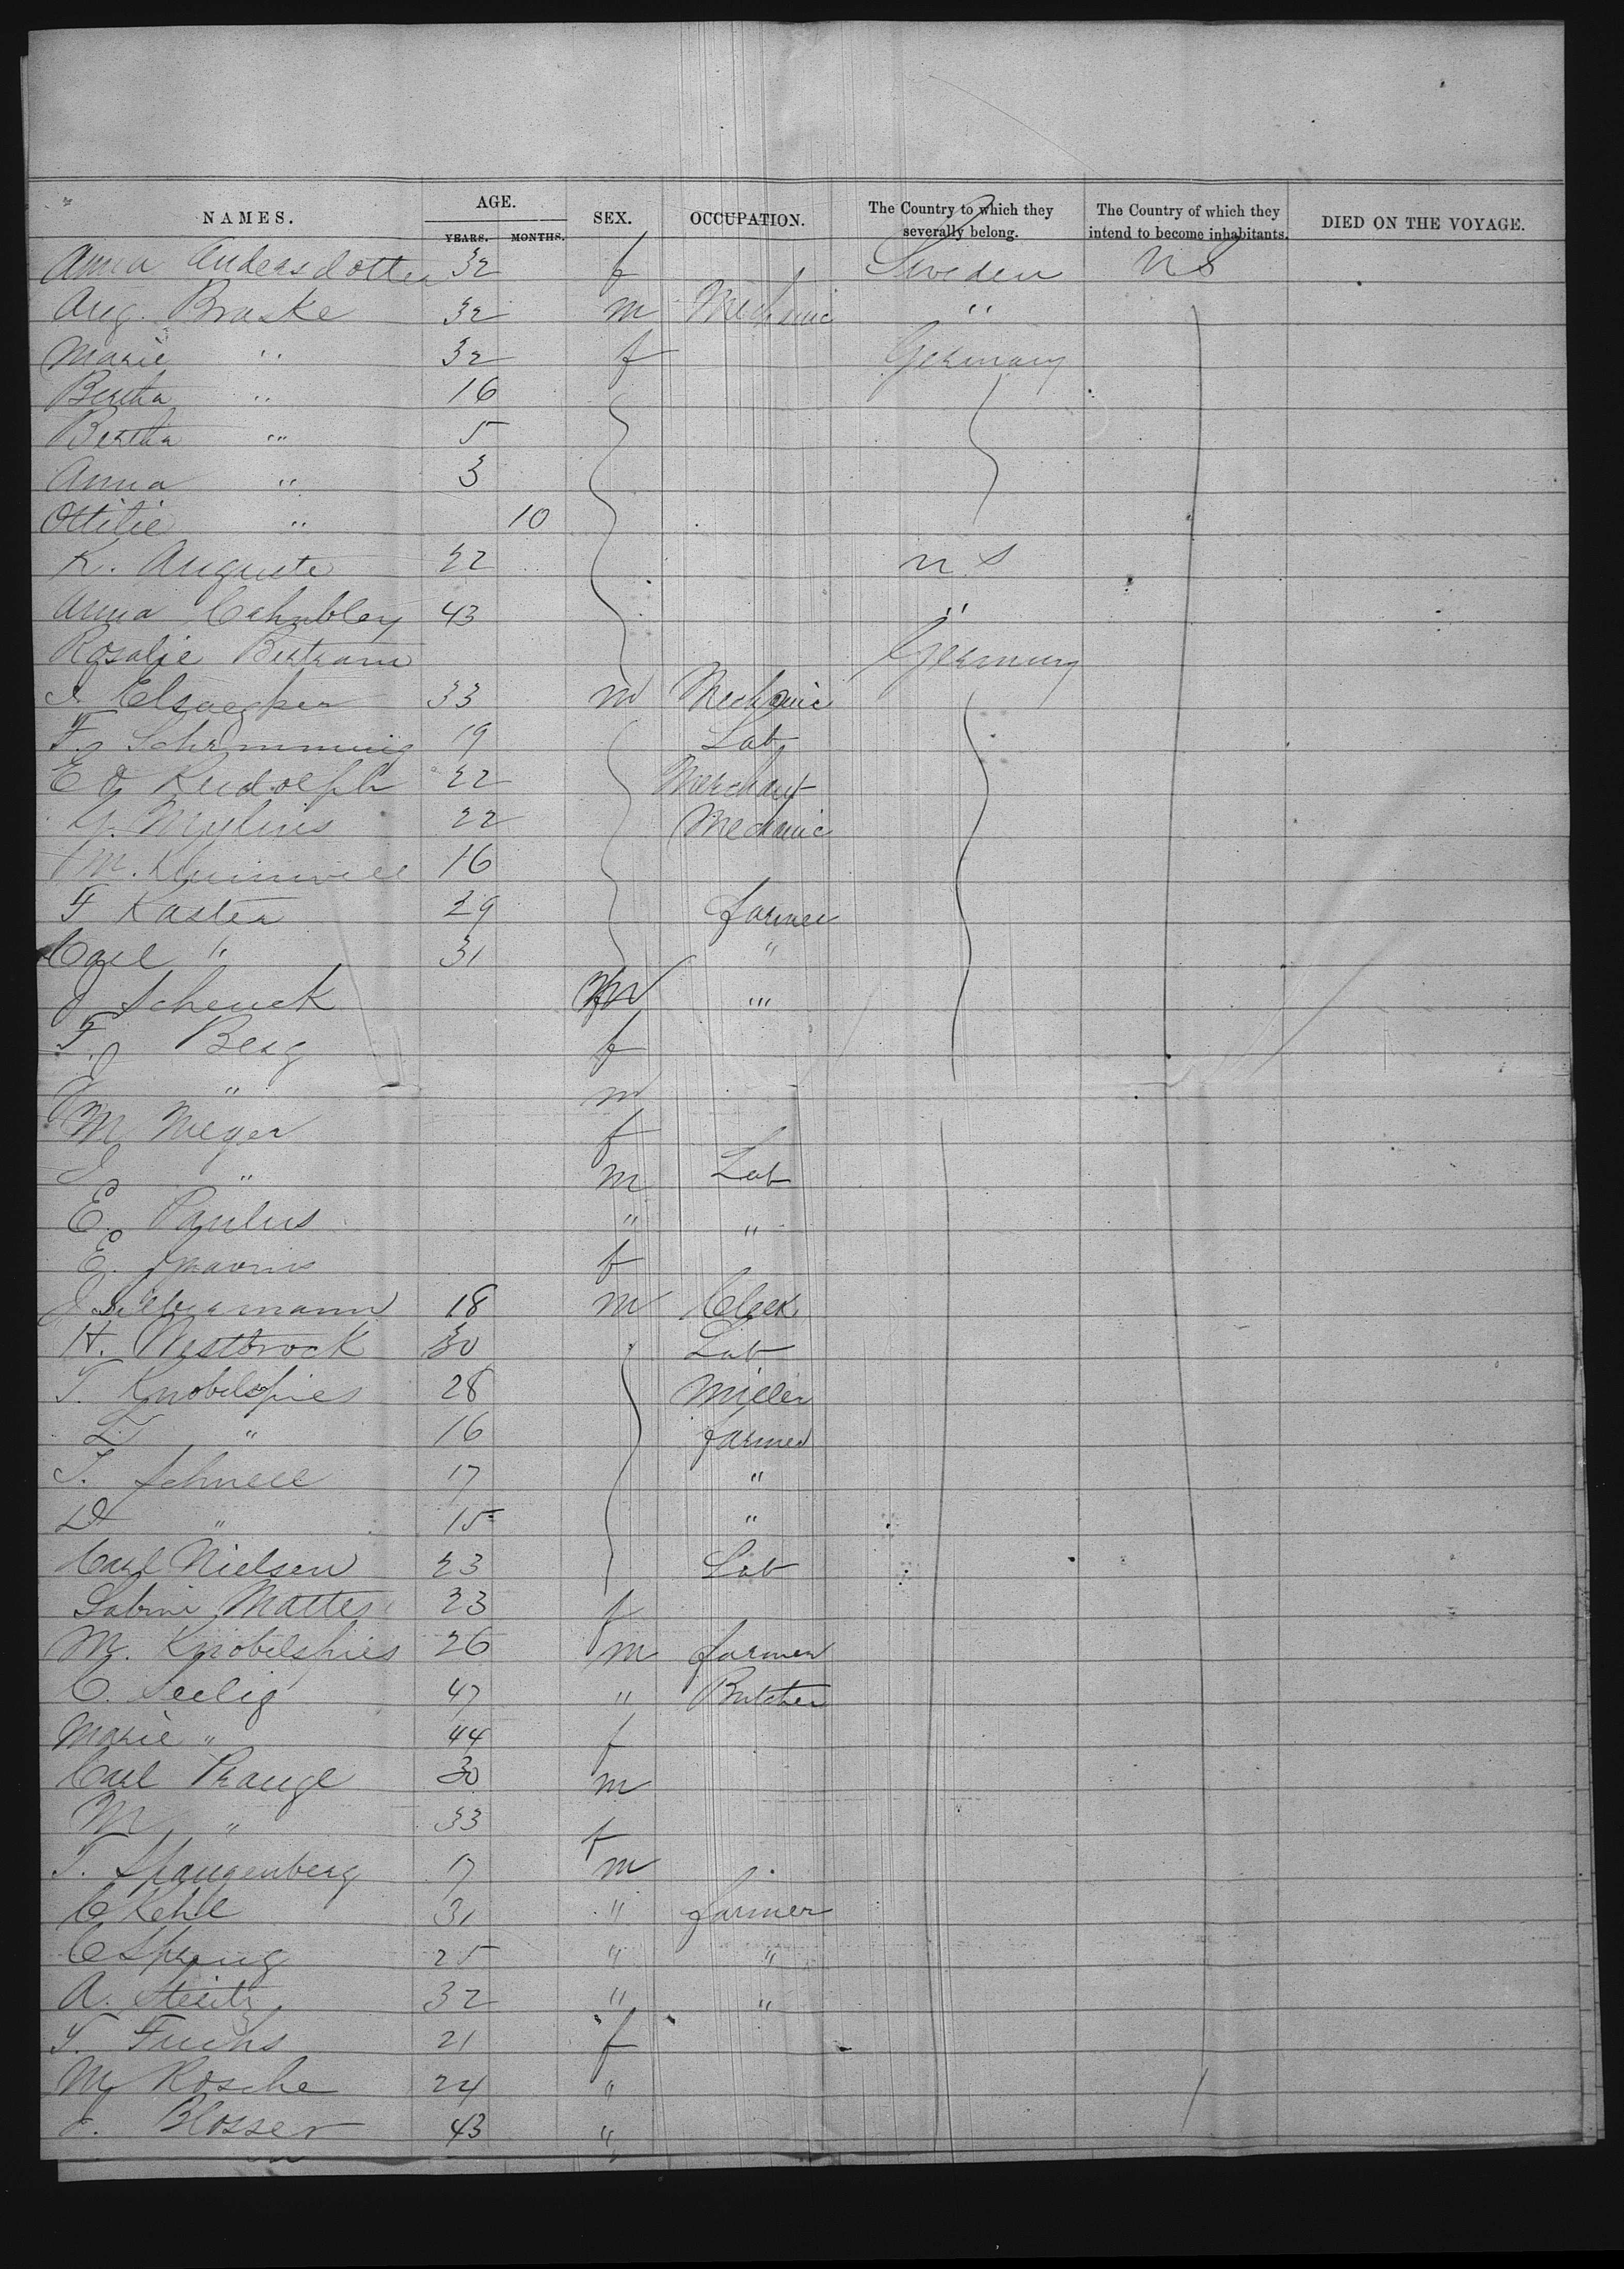 NAMES. AGE. SEX. OCCUPATION. The Country to which they severally belong. The Country of which they intend to become inhabitants. DIED ON THE VOYAGE.
YEARS. MONTHS.
Anna Andersdotter 32 f Sweden U S
Aug. Braske 32 m Mechanic "
Marie " 32 f Germany
Bertha " 16
Bertha " 5
Anna " 3
Ottilie " 10
K. Auguste 22 U S
Anna 43 "
Rosalie Bertram Germany
33 m Mechanic
F. 19 Lab
E Rudolph 22 Merchant
Mylius 22 Mechanic
M. 16
F Kaster 29 farmer
Carl " 31 "
J Schenck m "
F. Berg f
" m
M Meyer f
" m Lab
E. Paulus " "
E. f
J Silbermann 18 m Clerk
H. Westbrock 30 Lab
T. Knobelspies 28 Miller
L " 16 farmer
T. Schnell 17 "
" 15 "
Carl Nielsen 23 Lab
Sabine Mattes 23 f
M. Knobelspies 26 m farmer
C. Seelig 47 " Butcher
Marie " 44 f
Carl Prange 30 m
M " 33 f
T. Spangenberg 17 m
C Kehle 31 " farmer
C 25 " "
A. 32 " "
T. Fuchs 21 f
M Rosche 24 "
J. Blosser 43 "